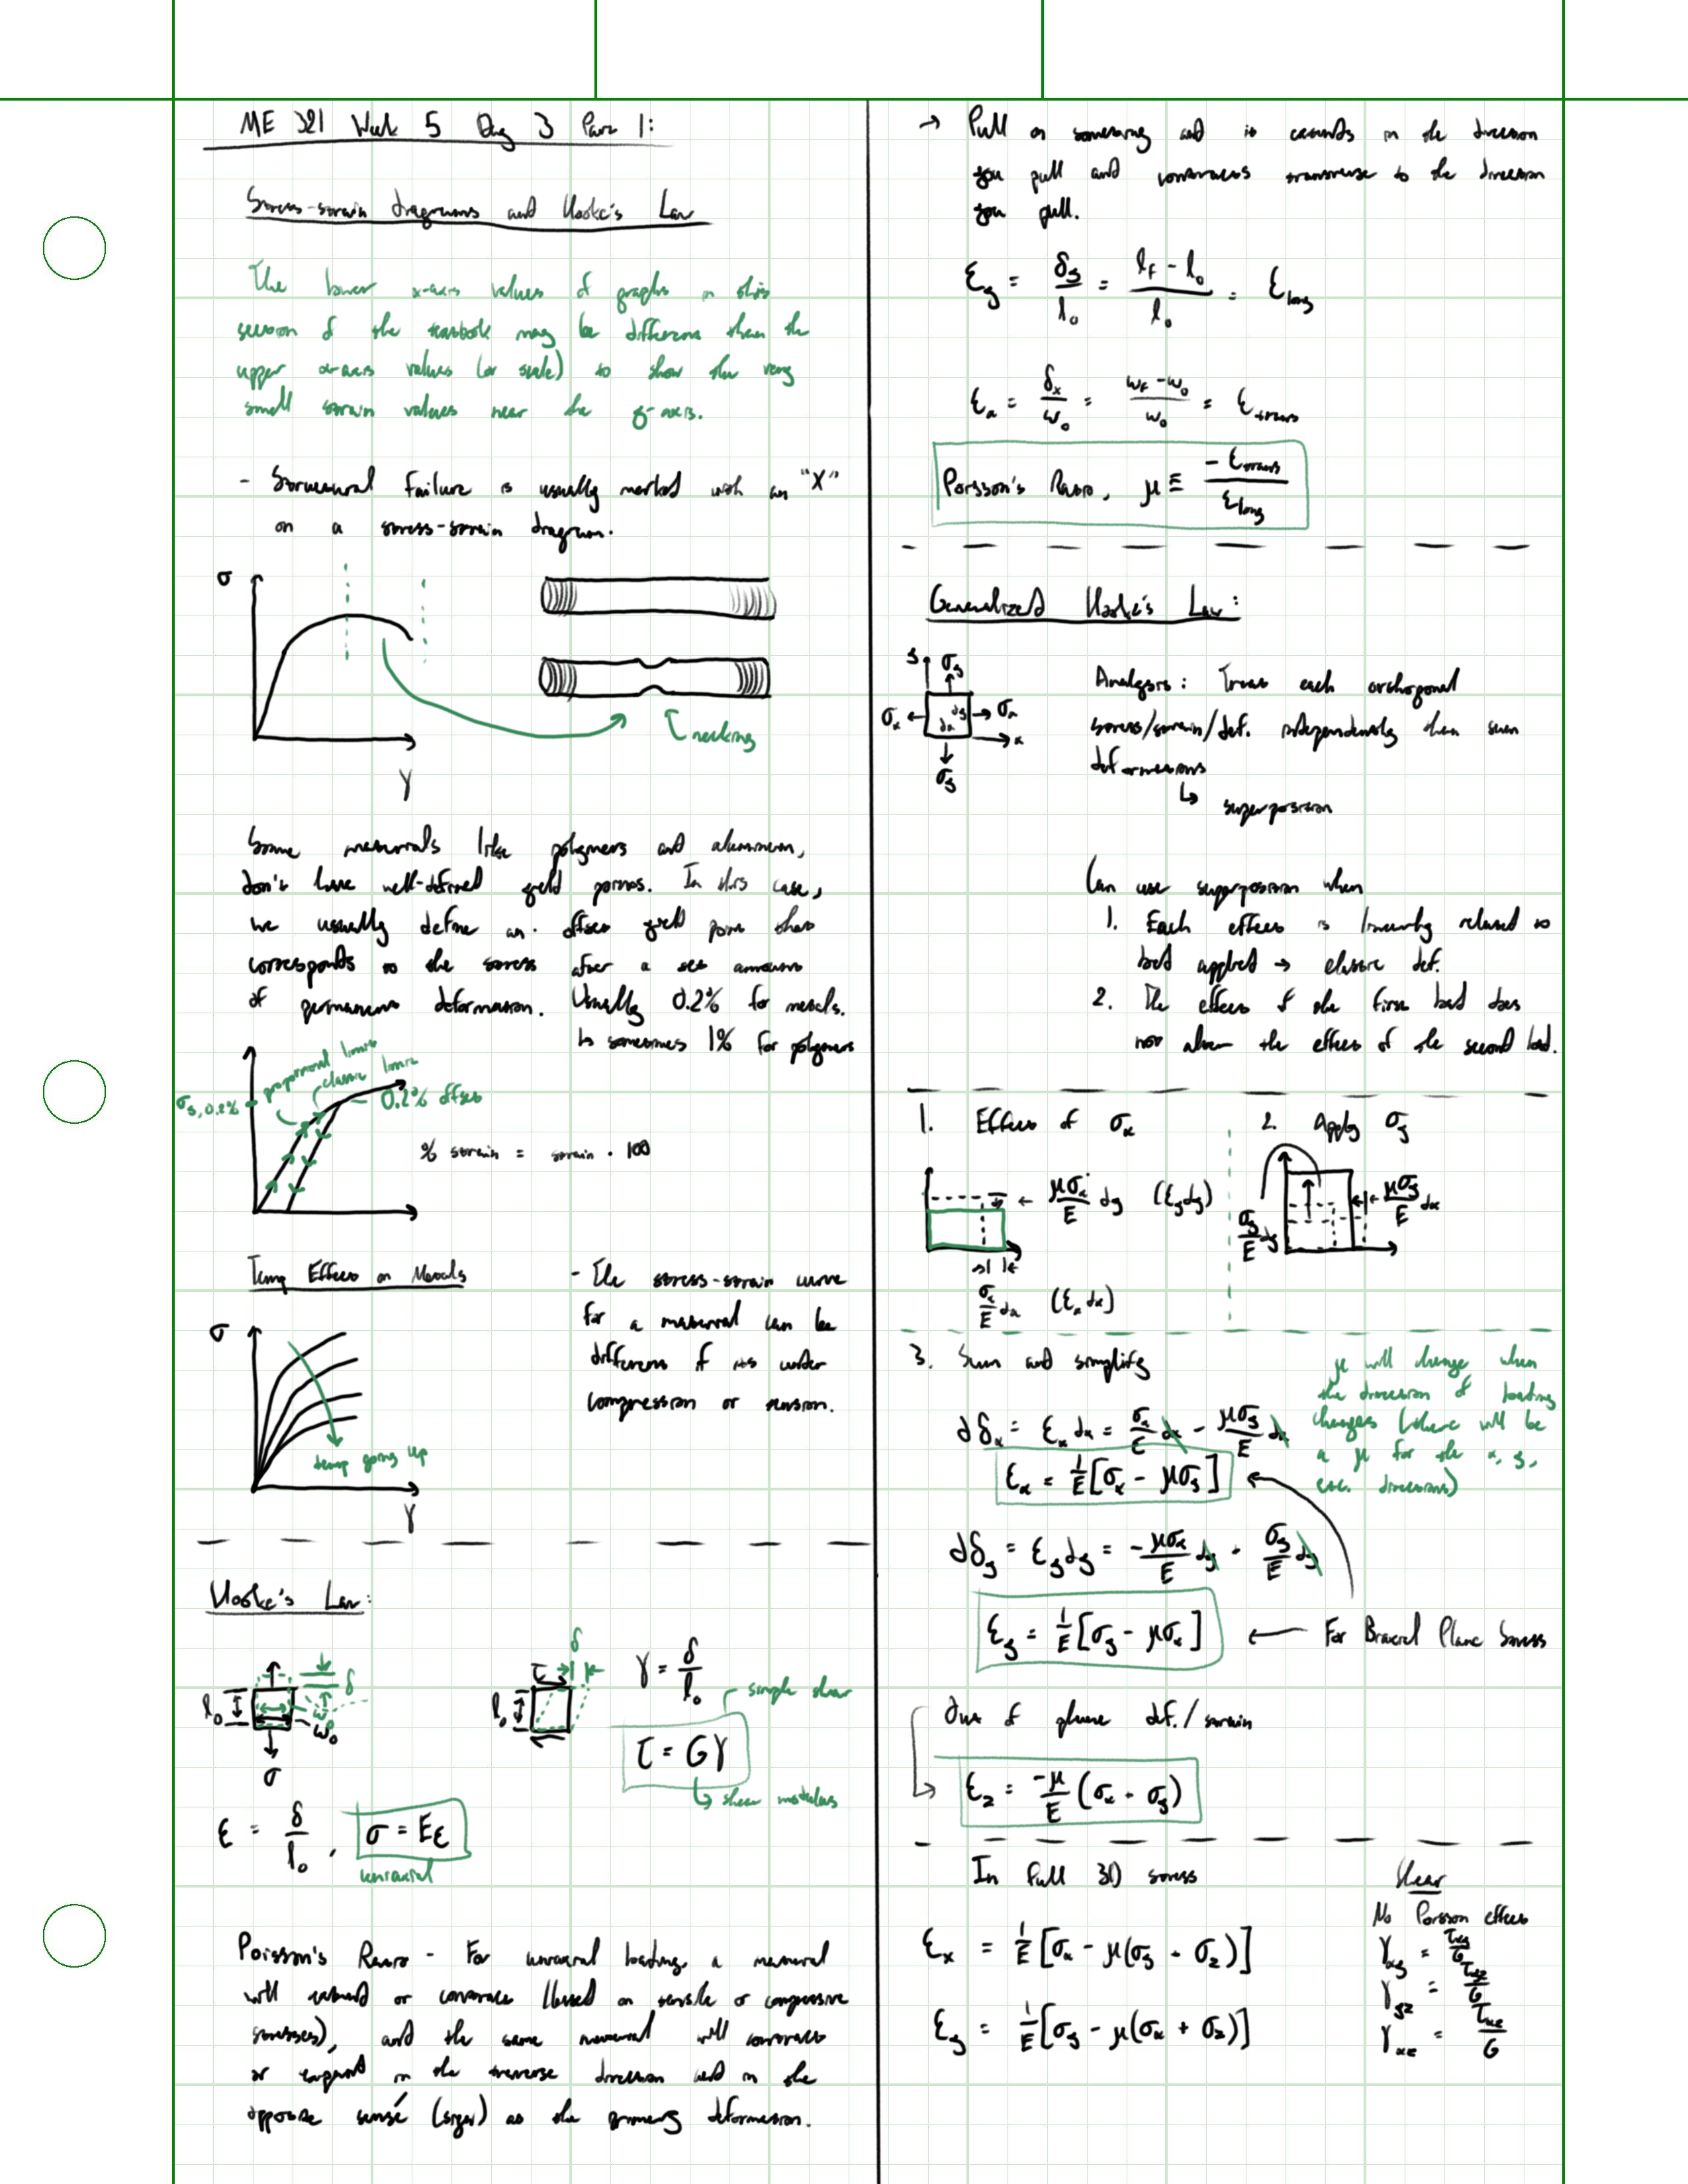 ME 321 Week 5 Day 3 Part 1:
Stress-strain diagrams and Hooke's Law
The lower x-axis values of graphs in this
section of the textbook may be different than the
upper x-axis values (or scale) to show the very
small strain values near the y-axis.
- Structural failure is usually marked with an "X"
on a stress-strain diagram.
σ
γ
necking
Some materials like polymers and aluminum,
don't have well-defined yield points. In this case,
we usually define an offset yield point that
corresponds to the stress after a set amount
of permanent deformation. Usually 0.2% for metals.
↳ sometimes 1% for polymers
proportional limit
elastic limit
σy, 0.2%
0.2% offset
% strain = strain · 100
Temp Effects on Metals
σ
temp going up
γ
- The stress-strain curve
for a material can be
different if its under
compression or tension.
Hooke's Law:
l₀
δ
w₀
σ
l₀
τ
δ
γ = δ/l₀
simple shear
τ = Gγ
↳ shear modulus
ε = δ/l₀, σ = Eε
uniaxial
Poisson's Ratio - For uniaxial loading, a material
will extend or contract (based on tensile or compressive
stresses), and the same material will contract
or expand in the traverse direction and in the
opposite sense (sign) as the primary deformation.
→ Pull on something and it extends in the direction
you pull and contracts transverse to the direction
you pull.
εy = δy/l₀ = (lf - l₀)/l₀ = εlong
εx = δx/w₀ = (wf - w₀)/w₀ = εtrans
Poisson's Ratio, μ ≡ -εtrans/εlong
Generalized Hooke's Law:
y σy
σx dx dy σx
x
σy
Analysis: Treat each orthogonal
stress/strain/def. independently then sum
deformations
↳ superposition
Can use superposition when
1. Each effect is linearly related to
load applied → elastic def.
2. The effect of the first load does
not alter the effect of the second load.
1. Effect of σx
μσx/E dy (εy dy)
σx/E dx (εx dx)
2. Apply σy
μσy/E dx
σy/E dy
3. Sum and simplify
μ will change when
the direction of loading
changes (there will be
a μ for the x, y,
etc. directions)
dδx = εx dx = σx/E dx - μσy/E dx
εx = 1/E[σx - μσy]
dδy = εy dy = -μσx/E dy + σy/E dy
εy = 1/E[σy - μσx] ← For Biaxial Plane Stress
Out of plane def./strain
εz = -μ/E (σx + σy)
In full 3D stress
εx = 1/E[σx - μ(σy + σz)]
εy = 1/E[σy - μ(σx + σz)]
Shear
No Poisson effect
γxy = τxy/G
γyz = τyz/G
γxz = τxz/G